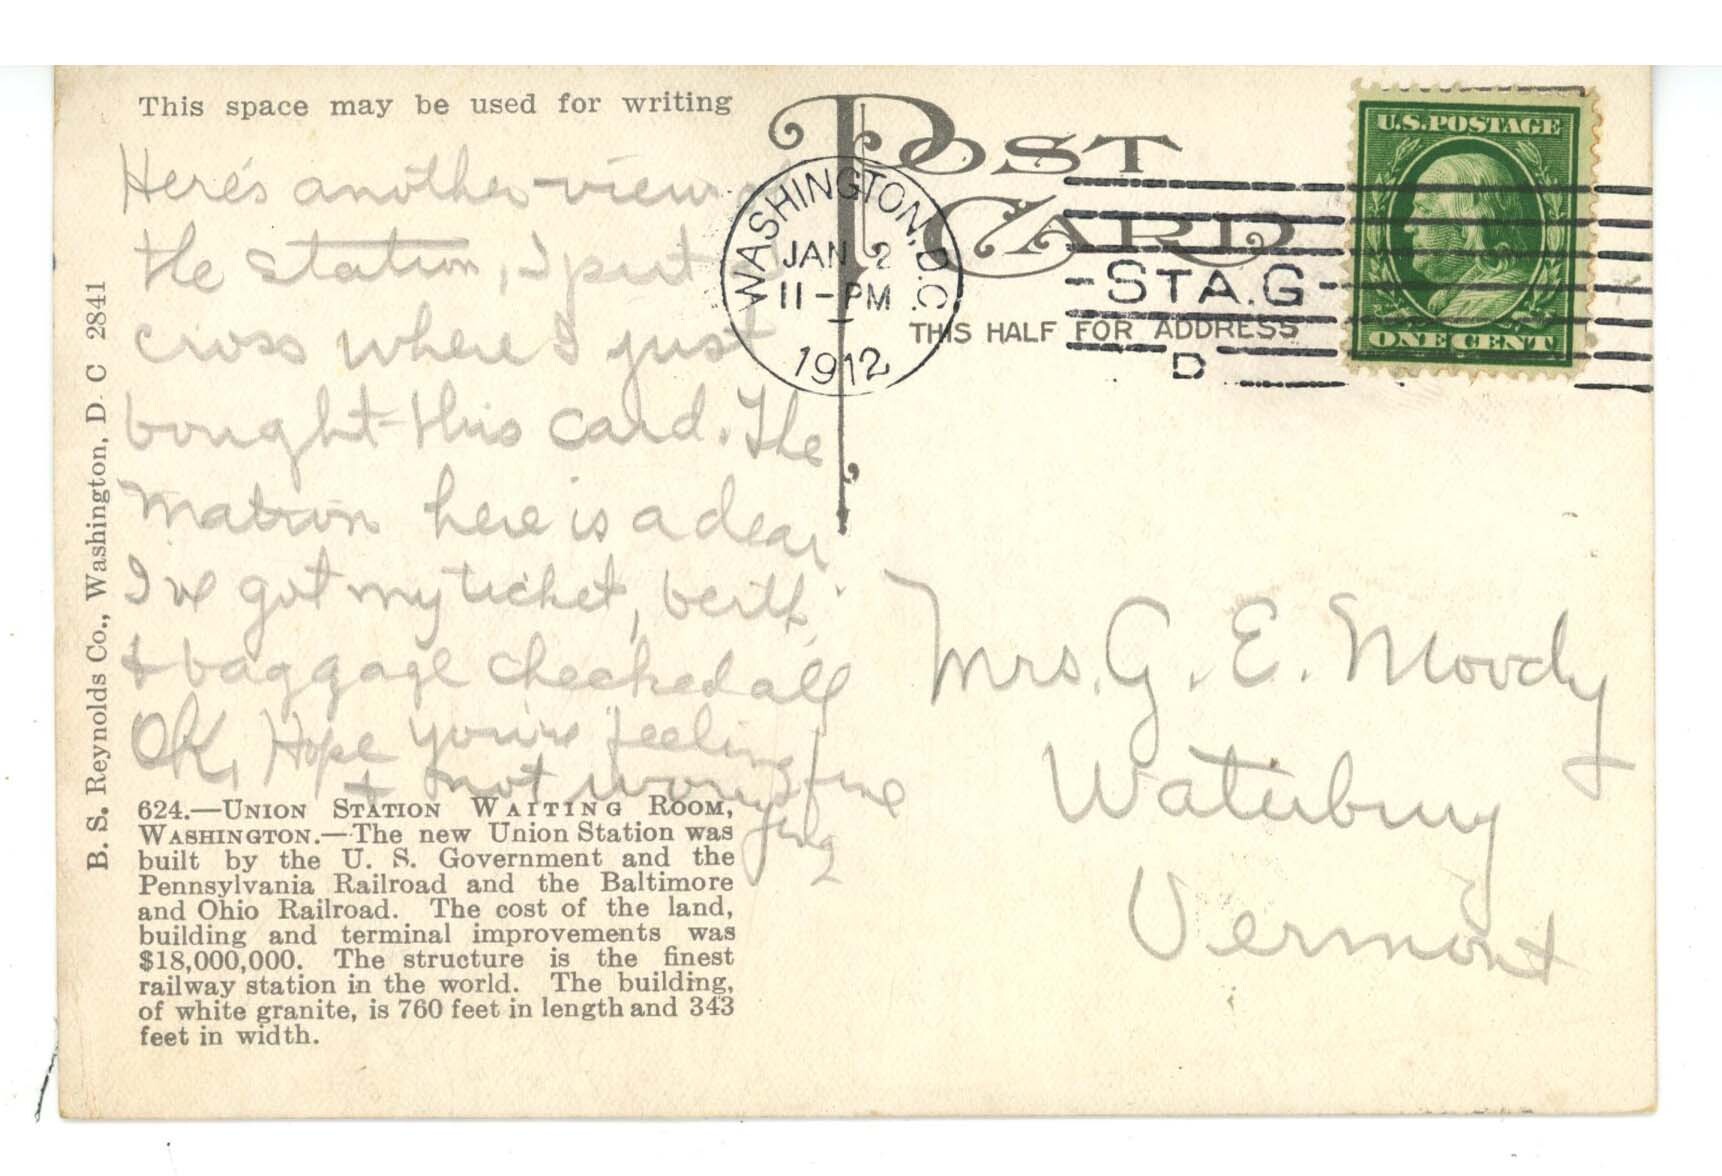 This space may be used for writing
Here's another view of
the station, I put a
cross where I just
bought this card. The
matron here is a dear
I've got my ticket, berth,
& baggage checked all
OK, Hope you're feeling fine
& not worrying
624.—UNION STATION WAITING ROOM,
WASHINGTON.—The new Union Station was
built by the U. S. Government and the
Pennsylvania Railroad and the Baltimore
and Ohio Railroad. The cost of the land,
building and terminal improvements was
$18,000,000. The structure is the finest
railway station in the world. The building,
of white granite, is 760 feet in length and 343
feet in width.
B. S. Reynolds Co., Washington, D. C 2841
POST
CARD
THIS HALF FOR ADDRESS
WASHINGTON, D.C.
JAN 2
11-PM
1912
STA. G
D
U.S. POSTAGE
ONE CENT
Mrs. G. E. Moody
Waterbury
Vermont